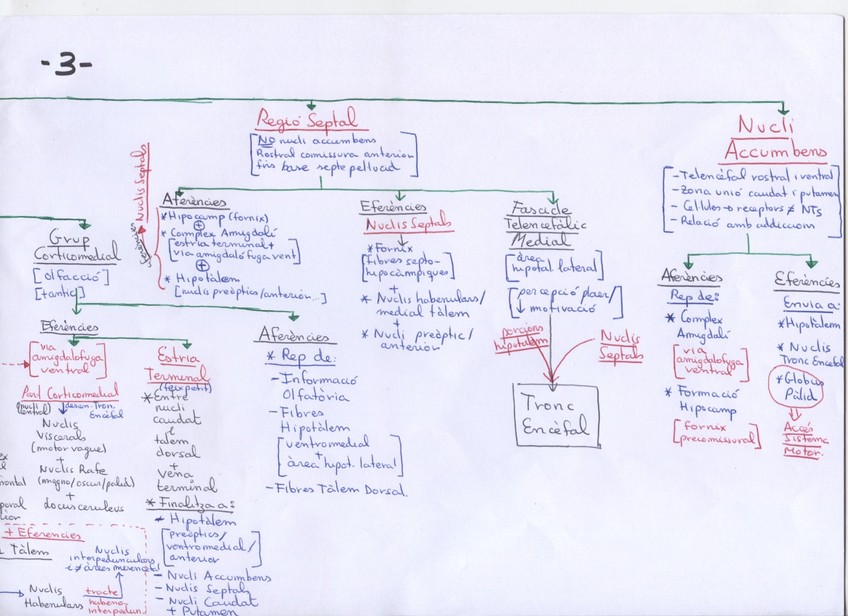 -3-
Regió Septal
[NO nucli accumbens
Rostral comissura anterior
fins base septe pellucid]
Nuclis Septals
Aferències
*Hipocamp (fornix)
+
* Complex Amigdalí
[estria terminal +
via amigdalofuga vent]
+
* Hipotàlem
[nuclis preòptics/anterior...]
Eferències
Nuclis Septals
*Fornix
[fibres septo-
hipocàmpiques]
+
* Nuclis habenulars/
medial tàlem
+
* Nucli preòptic/
anterior
Fascicle
Telencefàlic
Medial
[àrea
hipotal. lateral]
[percepció plaer/
↓ motivació]
porcions
hipotàlem
Nuclis
Septals
Tronc
Encèfal
Nucli
Accumbens
-Telencèfal rostral i ventral
-Zona unió caudat i putamen
- Cellules → receptors ≠ NTs
- Relació amb addiccions
Aferències
Rep de:
* Complex
Amigdalí
[via
amigdalofuga
ventral]
* Formació
Hipocamp
[fornix
precomissural]
Eferències
Envia a:
*Hipotàlem
* Nuclis
Tronc Encèfal
*Globus
Pàl·lid
Accés
Sistema
Motor.
Grup
Corticomedial
[olfacció]
Eferències
[via
amigdalofuga
ventral]
Part Corticomedial
Nuclis
Viscerals
(motor vague)
+
Nuclis Rafe
(magno/oscur/pàlid)
+
locus ceruleus
Estria
Terminal
*Entre
nucli
caudat
i
tàlem
dorsal
+
vena
terminal
* Finalitza a:
* Hipotàlem
[preòptics/
ventromedial/
anterior]
- Nucli Accumbens
- Nuclis Septals
- Nucli Caudat
+ Putamen
Aferències
* Rep de:
-Informació
Olfatòria
-Fibres
Hipotàlem
[ventromedial
+
àrea hipot. lateral]
-Fibres Tàlem Dorsal.
+ Eferencies
Tàlem
Nuclis
interpedunculars
Nuclis
Habenulars
tracte
habeno-
interpedun.